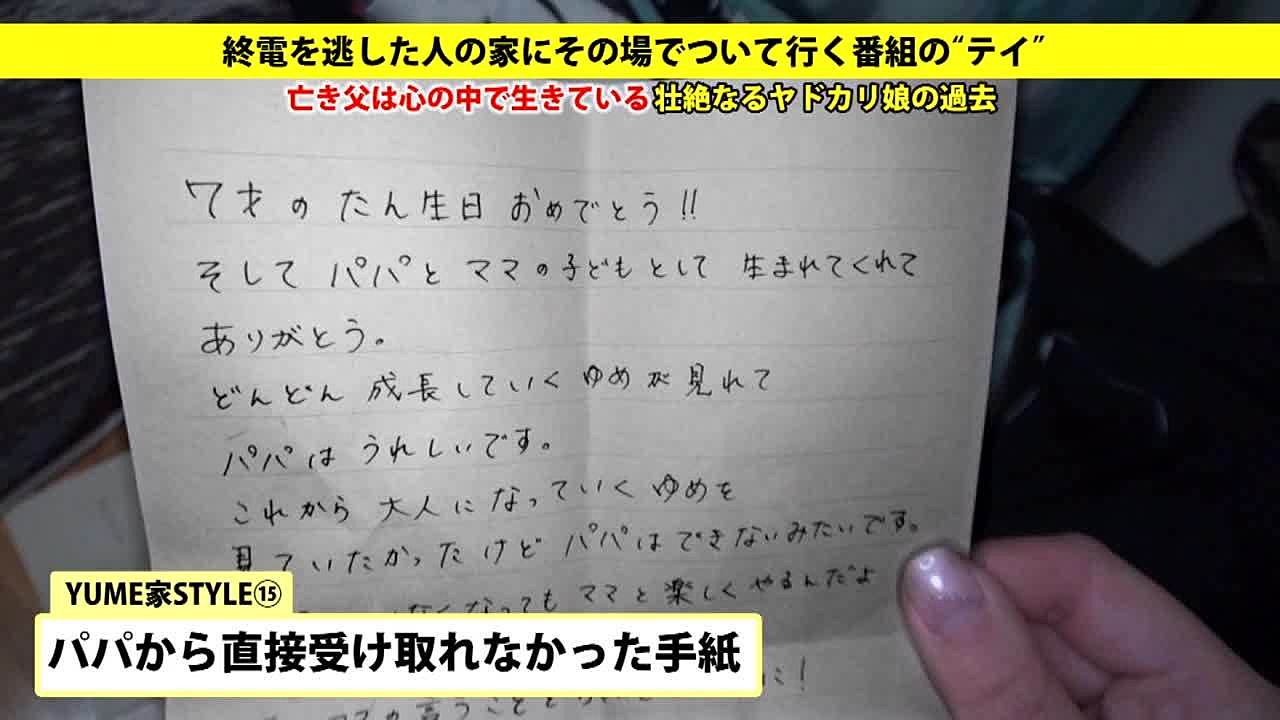 終電を逃した人の家にその場でついて行く番組の“テイ”
亡き父は心の中で生きている 壮絶なるヤドカリ娘の過去
7才のたん生日 おめでとう!!
そして パパと ママの子どもとして 生まれてくれて
ありがとう。
どんどん 成長していく ゆめが見れて
パパは うれしいです。
これから 大人になっていく ゆめを
見ていたかったけど パパはできないみたいです。
なくなっても ママと 楽しくやるんだよ
の言うこと
に!
YUME家STYLE⑮
パパから直接受け取れなかった手紙